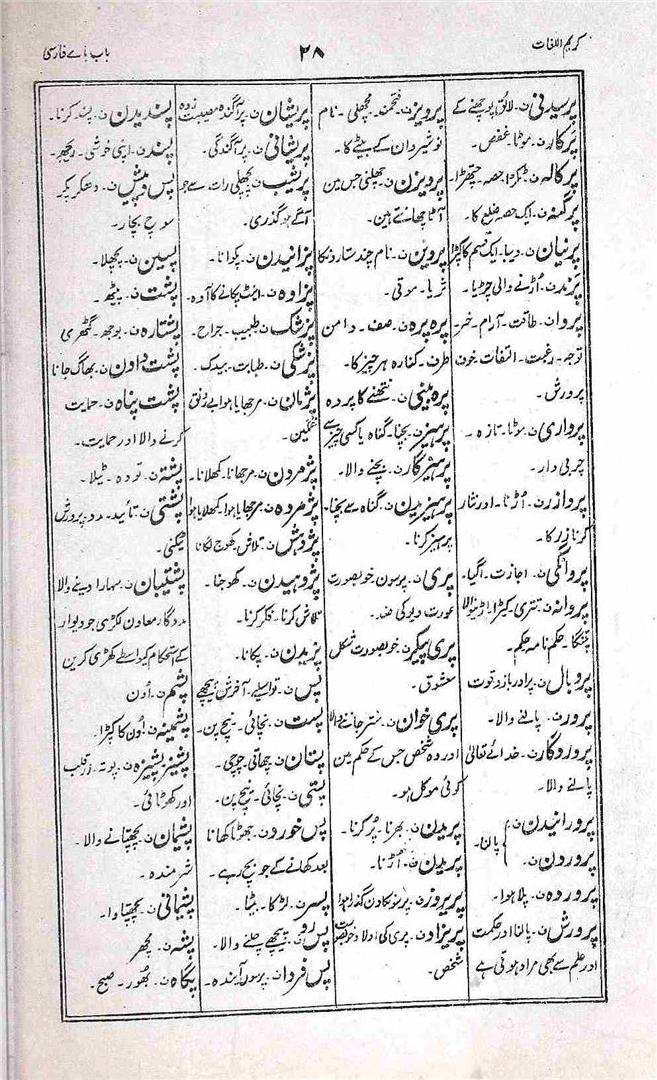 کریم اللغات
۲۸
باب بائے فارسی
پرسیدنی ن۔ لائق پوچھنے کے
پرکار ن۔ موٹا۔ غفص۔
پرکالہ ن۔ ٹکڑا۔ حصہ۔ چتھڑا۔
پرگنہ ن۔ ایک حصہ ضلع کا۔
پرنیان ن۔ دیبا۔ ایک قسم کا کپڑا
پرند ن۔ اُڑنے والی چڑیا۔
پروان۔ طاقت۔ آرام۔ خبر۔
توجہ۔ رغبت۔ التفات۔ خوف
پرورش۔
پرواری ن۔ موٹا۔ تازہ۔
چربی دار۔
پرواز ن۔ اُڑنا۔ اور نثار
کرنا زر کا۔
پروانگی ن۔ اجازت۔ آگیا۔
پروانہ ن۔ تتری۔ کیڑا اڑنیوالا
پتنگا۔ حکم نامہ۔ حکم۔
پر و بال ن۔ پر اور بازو۔ قوت
پرور ن۔ پالنے والا۔
پروردگار ن۔ خدائے تعالیٰ
پالنے والا۔
پرورانیدن ن۔
پروردن ن۔ پالنا۔
پروردہ ن۔ پلا ہوا۔
پرورش ن۔ پالنا اور حکمت
اور علم سے بھی مراد ہوتی ہے
پرویز ن۔ فتحمند۔ مچھلی۔ نام
نوشیروان کے بیٹے کا۔
پرویزن ن۔ چھلنی جس مین
آٹا چھانتے ہین۔
پروین ن۔ نام چند ستارونکا
ثریا۔ موتی۔
پرہ پرہ ن۔ صف۔ دامن
طرف۔ کنارہ ہر چیز کا۔
پرہ بینی ن۔ نتھنے کا پردہ
پرہیز ن۔ بچنا۔ گناہ یا کسی چیز سے
پرہیزگار ن۔ بچنے والا۔
پرہیزیدن ن۔ گناہ سے بچنا۔
پرہیز کرنا۔
پری ن۔ پرسون۔ خوبصورت
عورت۔ دیو کی ضد۔
پری پیکر ن۔ خوبصورت شکل
معشوق۔
پری خوان ن۔ منتر جاننے والا
اور وہ شخص جس کے حکم مین
کوئی موکل ہو۔
پریدن ن۔ بھرنا۔ پُر کرنا۔
پریدن ن۔ اُڑنا۔
پریروز ن۔ پرسونکا دن گذرا ہوا
پریزاد ن۔ پری کی اولاد۔ خوبصورت
شخص۔
پریشان ن۔ پراگندہ۔ مصیبت زدہ
پریشانی ن۔ پراگندگی۔
پریشب ن۔ پچھلی رات سے جو
آگے ہو گذری۔
پزانیدن ن۔ پکوانا۔
پزاوہ ن۔ اینٹ پکانے کا آوہ۔
پزشک ن۔ طبیب۔ جراح۔
پزشکی ن۔ طبابت۔ بیدک۔
پژمان ن۔ مرجھایا ہوا۔ بے رونق
غمگین۔
پژمردن ن۔ مرجھانا۔ کمھلانا۔
پژمردہ ن۔ مرجھایا ہوا۔ کمھلایا ہوا
پژوہش ن۔ تلاش۔ کھوج لگانا
پژوہیدن ن۔ کھوجنا۔
تلاش کرنا۔ فکر کرنا۔
پزیدن ن۔ پکانا۔
پس ن۔ تو اسلیے۔ آخرش۔ پیچھے
پست ن۔ نچائی۔ نیچے پن۔
پستان ن۔ چھاتی۔ چوچی۔
پستی ن۔ نچائی۔ نیچے پن۔
پس خورد ن۔ جھوٹا کھانا
بعد کھانے کے جو بچ رہے۔
پسر ن۔ لڑکا۔ بیٹا۔
پس رو ن۔ پیچھے چلنے والا۔
پس فردا ن۔ پرسون آیندہ۔
پسندیدن ن۔ پسند کرنا۔
پسند ن۔ اپنی خوشی۔ ریجھ۔
پس و پیش ن۔ دھکڑ پکڑ
سوچ بچار۔
پسین ن۔ پچھلا۔
پشت ن۔ پیٹھ۔
پشتارہ ن۔ بوجھ۔ گٹھری
پشت دادن ن۔ بھاگ جانا
پشت پناہ ن۔ حمایت
کرنے والا اور حمایت۔
پشتہ ن۔ تودہ۔ ٹیلا۔
پشتی ن۔ تائید۔ مدد۔ پرورش
ٹیکنی۔
پشتیبان ن۔ سہارا دینے والا
مددگار۔ معاون۔ لکڑی جو دیوار
کے استحکام کیواسطے کھڑی کرین
پشم ن۔ اُون
پشمینہ ن۔ اُون کا کپڑا۔
پشیز پشیزہ ن۔ پوتہ۔ زر قلب
اور کھوٹائی۔
پشیمان ن۔ پچھتانے والا۔
شرمندہ۔
پشیمانی ن۔ پچھتاوا۔
پشہ ن۔ مچھر
پگاہ ن۔ بھور۔ صبح۔